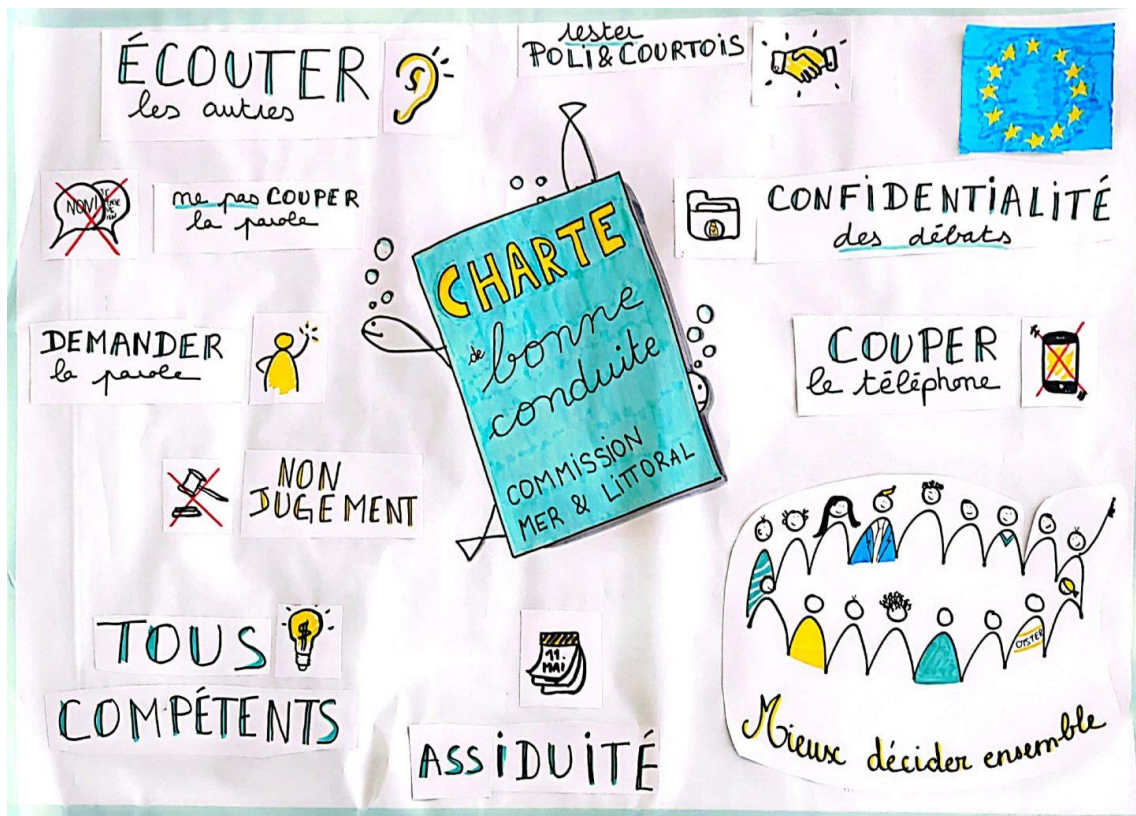 ÉCOUTER
les autres
rester
POLI & COURTOIS
NON!
ne pas COUPER
la parole
CONFIDENTIALITÉ
des débats
CHARTE
de bonne
conduite
COMMISSION
MER & LITTORAL
DEMANDER
la parole
COUPER
le téléphone
NON
JUGEMENT
TOUS
COMPÉTENTS
11.
MAI
ASSIDUITÉ
OYSTER
Mieux décider ensemble